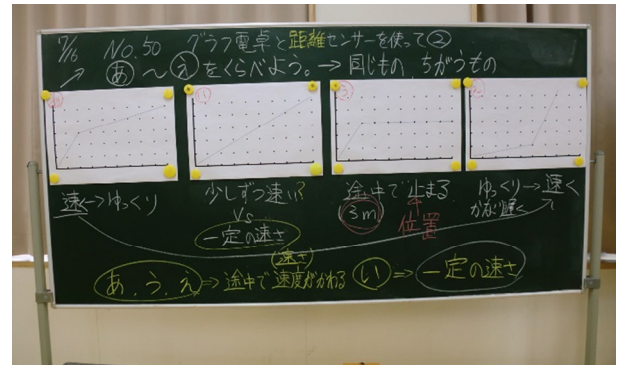 7/6 No.50 グラフ電卓と距離センサーを使って②
↗ あ～えをくらべよう。→同じもの ちがうもの
あ
い
う
え
速く→ゆっくり
少しずつ速い?
VS
一定の速さ
途中で止まる
3m
位置
ゆっくり→速く
かなり速く
あ、う、え⇒途中で速度がかわる
速さ
い⇒一定の速さ